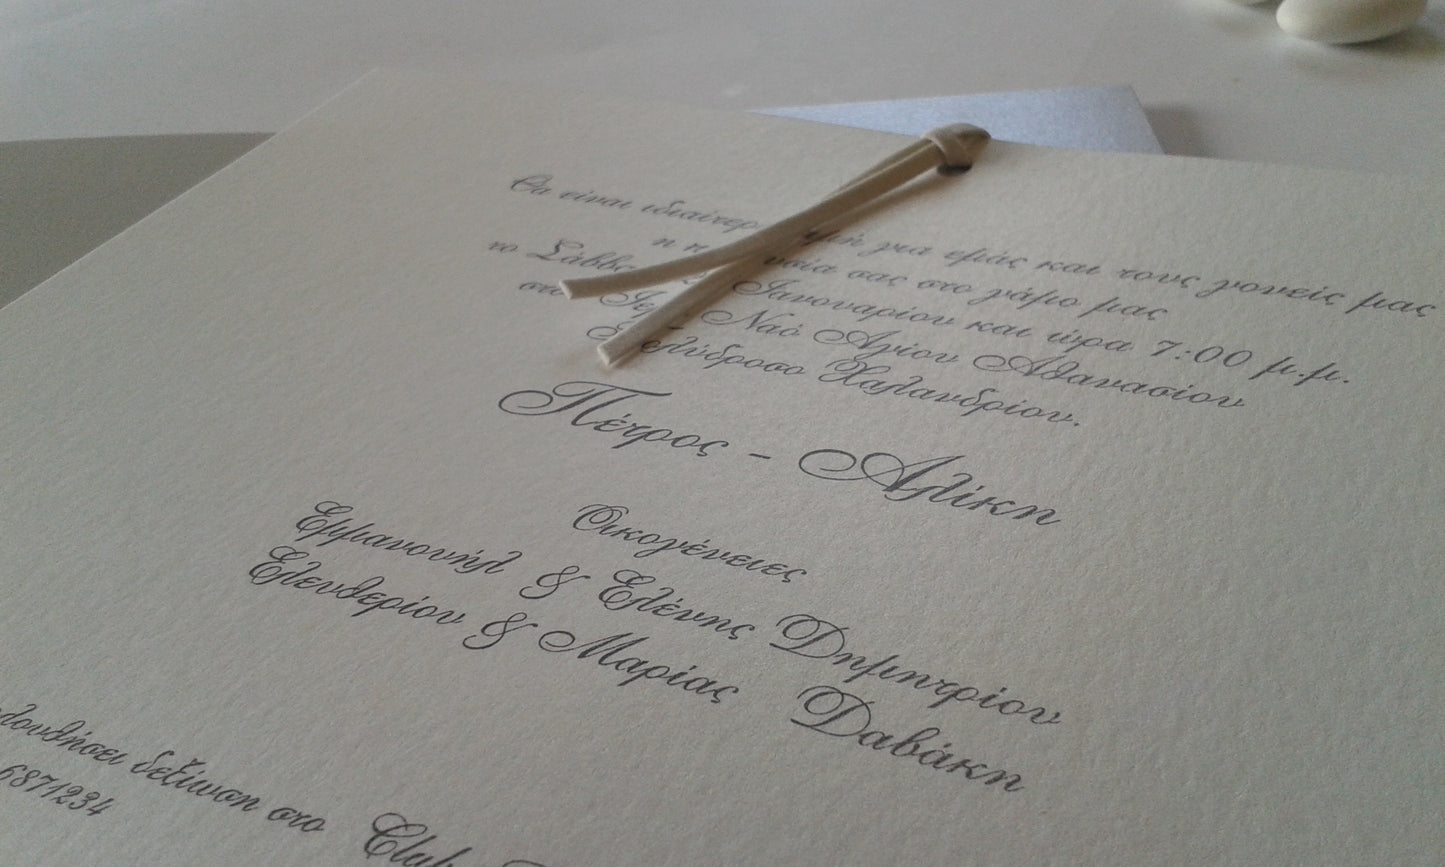 Θα είναι ιδιαίτερη τιμή για εμάς και τους γονείς μας
η παρουσία σας στο γάμο μας
το Σάββατο Ιανουαρίου και ώρα 7:00 μ.μ.
στον Ιερό Ναό Αγίου Αθανασίου
Πολύδροσο Χαλανδρίου.
Πέτρος - Αλίκη
Οικογένειες
Εμμανουήλ & Ελένης Δημητρίου
Ελευθερίου & Μαρίας Δαβάκη
λουθήσει δεξίωση στο Club
6871234